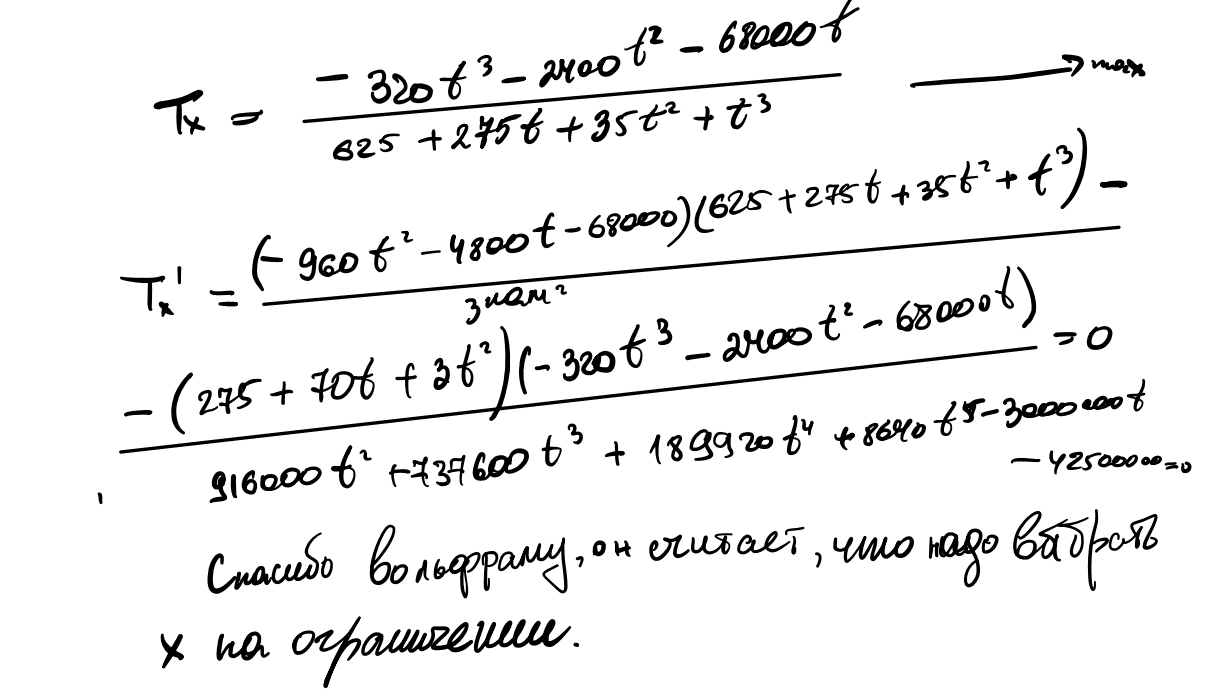 Tx = (- 320t³ - 2400t² - 68000t) / (625 + 275t + 35t² + t³) → max
Tx' = (- 960t² - 4800t - 68000)(625 + 275t + 35t² + t³) -
знам²
- (275 + 70t + 3t²)(- 320t³ - 2400t² - 68000t) = 0
916000t² + 737600t³ + 189920t⁴ + 8640t⁵ - 3000000t
- 42500000 = 0
Спасибо вольфраму, он считает, что надо выбрать
x на ограничении.